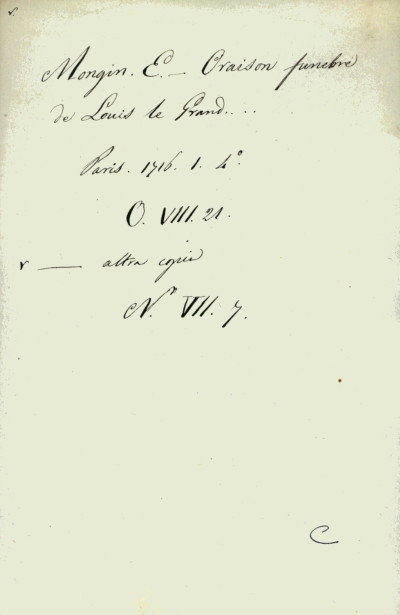 v.
Mongin. E. — Oraison funebre
de Louis le Grand....
Paris. 1716. 1. 4°.
O. VIII. 21.
v — altra copia
N.n VII. 7.
C